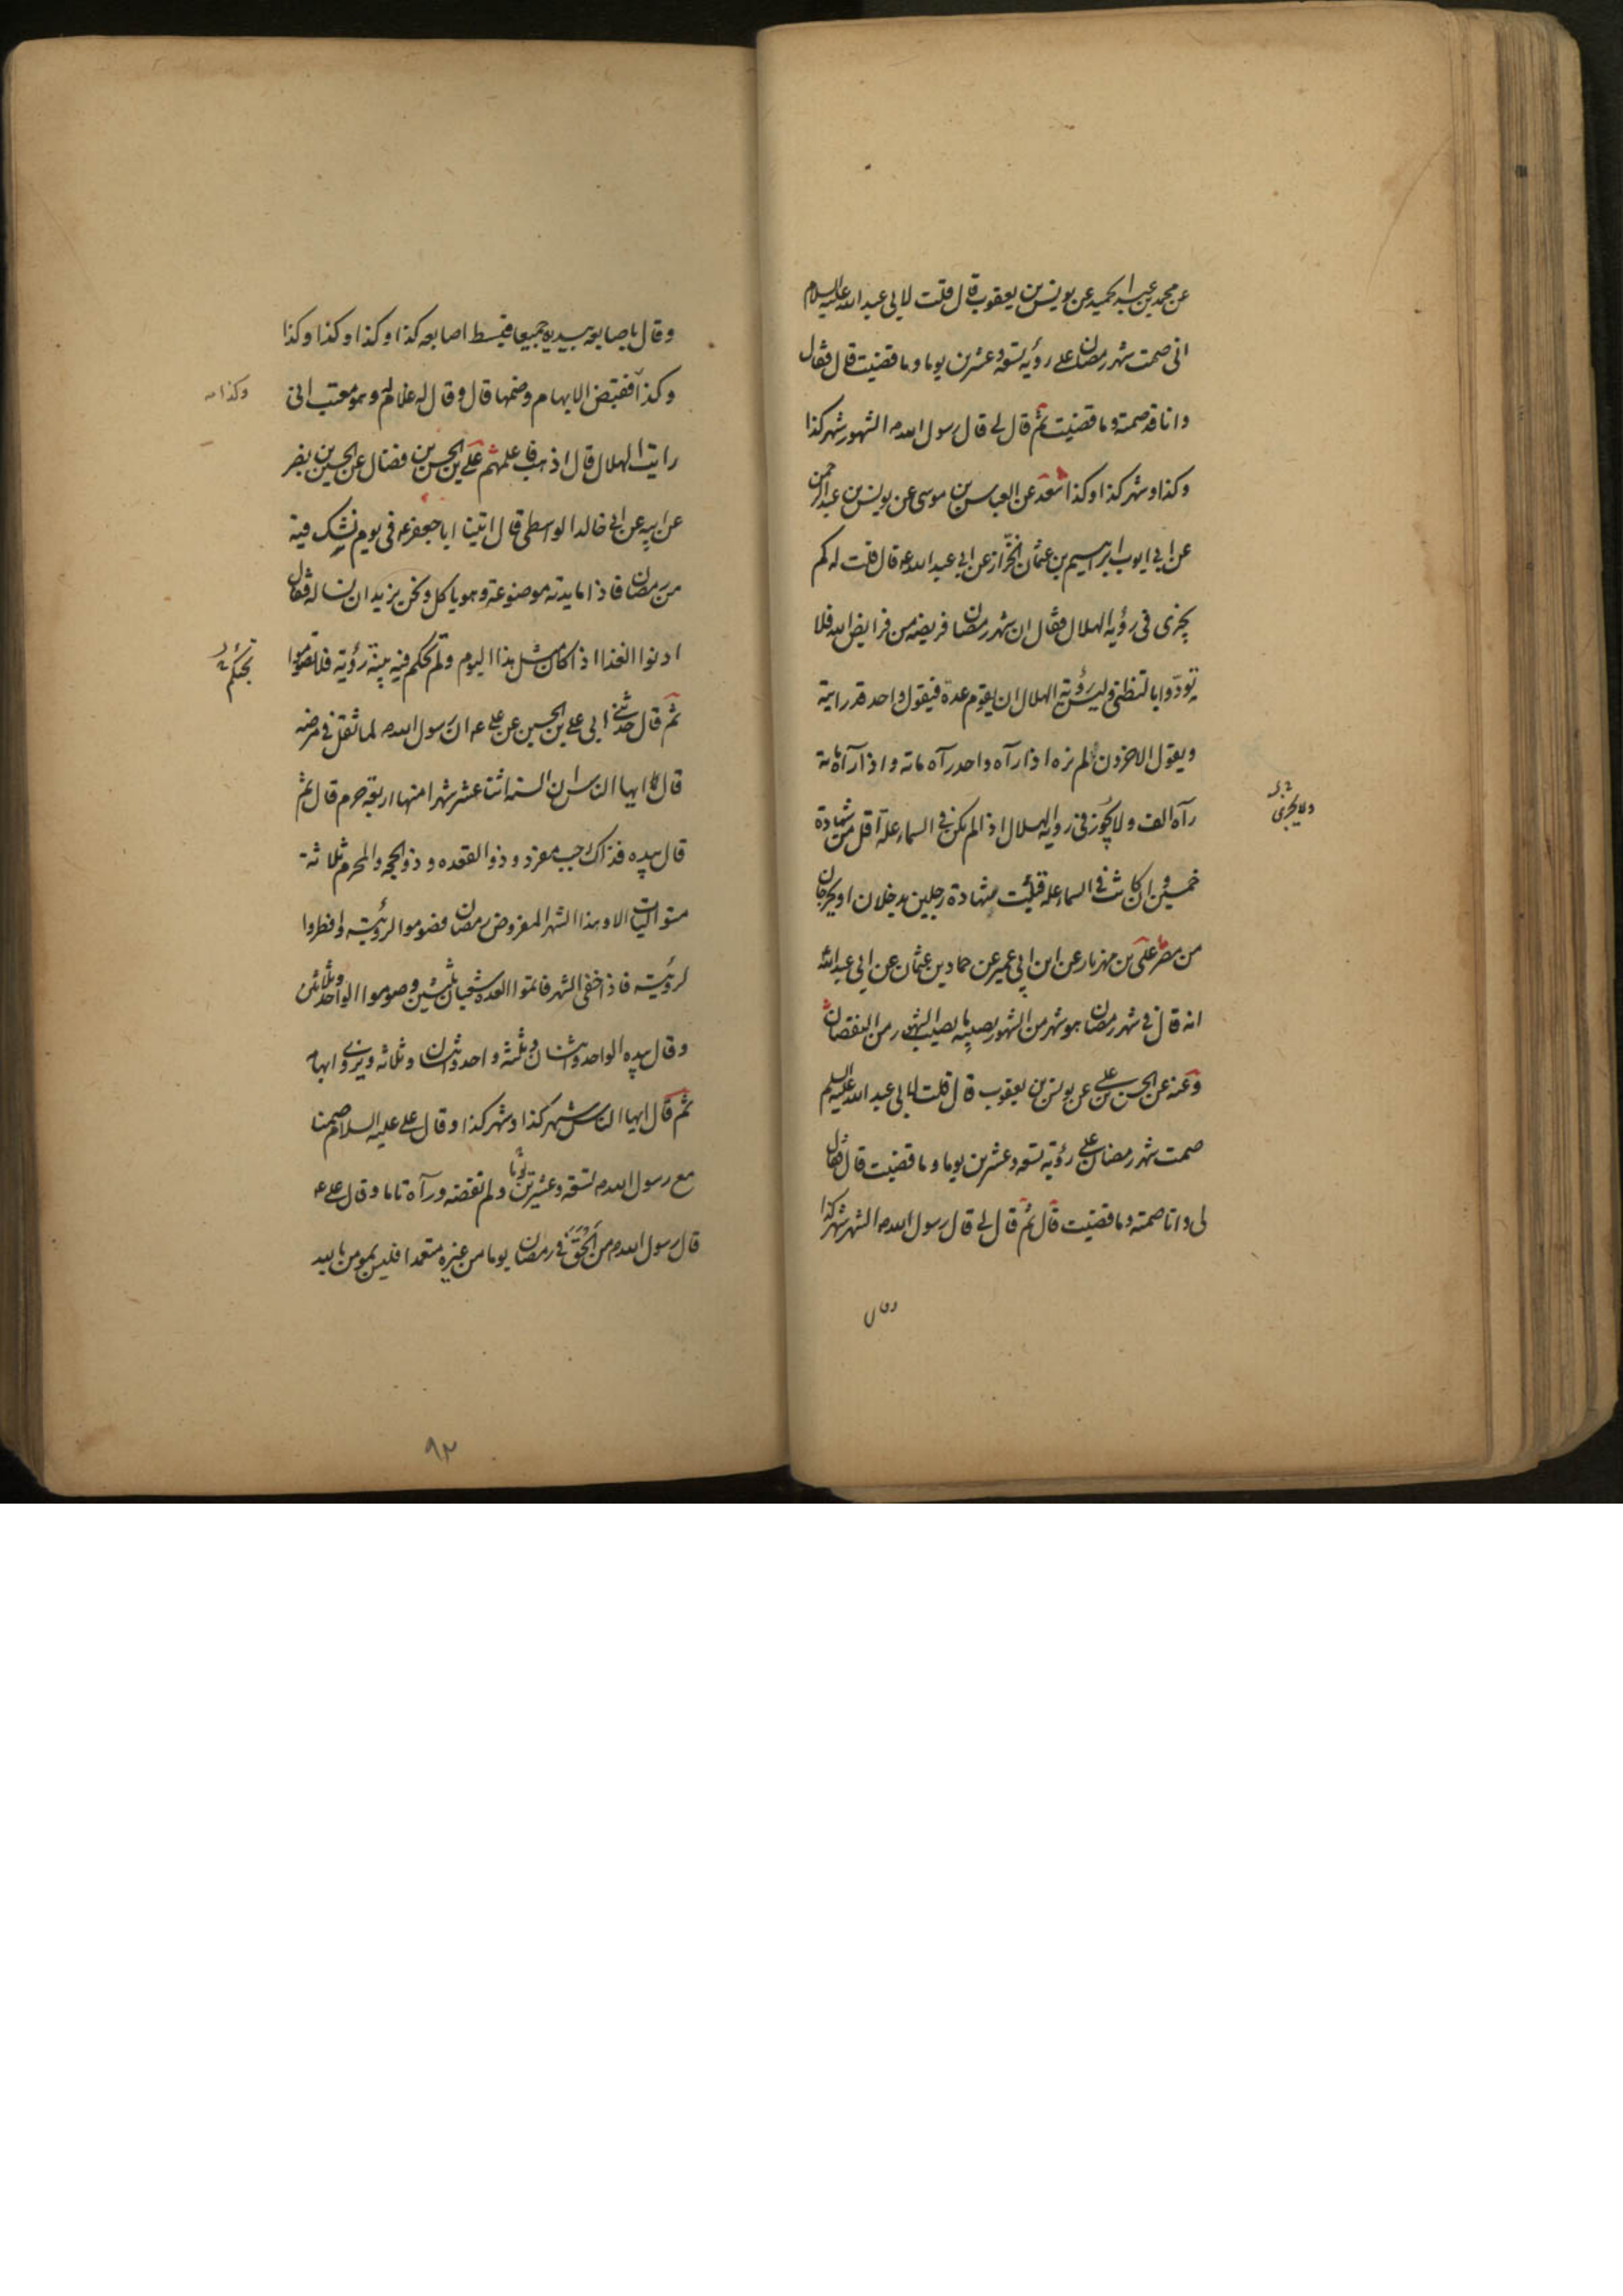 عن محمد بن عبد الحميد عن يونس بن يعقوب قال قلت لابي عبد الله عليه السلام
انى صمت شهر رمضان على رؤية تسعة وعشرين يوما وما قضيت قال فقال
وانا قد صمته وما قضيت ثم قال لي قال رسول الله ص الشهور شهر كذا
وكذا وشهر كذا وكذا سعد عن العباس بن موسى عن يونس بن عبد الرحمن
عن ابي ايوب ابراهيم بن عثمان الخزاز عن ابي عبد الله ع قال قلت له كم
يجزى فى رؤية الهلال فقال ان شهر رمضان فريضة من فرايض الله فلا
تودوا بالتظنى وليس رؤية الهلال ان يقوم عدة فيقول واحد قد رايته
ويقول الاخرون لم نره اذا رآه واحد رآه ماته واذا رآه ماته
رآه الف ولا يجوز فى روية الهلال اذا لم يكن فى السماء علة اقل من شهادة
ولا يجزى
خمسين وان كانت فى السماء علة قبلت شهادة رجلين يدخلان او يخرجان
من مصر على بن مهزيار عن ابن ابي عمير عن حماد بن عثمان عن ابي عبد الله
انه قال فى شهر رمضان هو شهر من الشهور يصيبه ما يصيب الشهور من النقصان
وعنه عن الحسن بن على عن يونس بن يعقوب قال قلت لابي عبد الله عليه السلم
صمت شهر رمضان على رؤية تسعه وعشرين يوما وما قضيت قال فقال
لى وانا صمته وما قضيت قال ثم قال لي قال رسول الله ص الشهر شهر كذا
وقال
وقال باصابعه بيديه جميعا فبسط اصابعه كذا وكذا وكذا وكذا
وكذا فقبض الابهام وضمها قال وقال له غلام له وهو معتب انى
وكذا
رايت الهلال قال اذهب فاعلمهم على بن الحسن بن فضال عن الحسين بن نصر
عن ابيه عن ابي خالد الواسطى قال اتينا ابا جعفر ع فى يوم نشك فيه
من رمضان فاذا مايدته موضوعة وهو ياكل ونحن نريد ان نساله فقال
ادنوا الغذا اذا كان مثل هذا اليوم ولم تحكم فيه بينة رؤية فلا تصوموا
تجئكم
ثم قال حدثنى ابي على بن الحسين عن على ع ان رسول الله ص لما ثقل فى مرضه
قال ايها الناس ان السنه اثنا عشر شهرا منها اربعة حرم قال ثم
قال بيده فذاك رجب مفرد وذو القعده وذو الحجه والمحرم ثلاثة
متواليات الا وهذا الشهر المفروض رمضان فصوموا لرؤيته وافطروا
لرؤيته فاذا خفى الشهر فاتموا العدة شعبان ثلثين وصوموا الواحد وثلاثين
وقال بيده الواحد واثنان وثلثه واحد واثنان وثلاثه ويزوى ابهامه
ثم قال ايها الناس شهر كذا وشهر كذا وقال على عليه السلام صمنا
مع رسول الله ص تسعة وعشرين يوما ولم نقضه ورآه تاما وقال على ع
قال رسول الله ص من الحق فى رمضان يوما من غيره متعمدا فليس بمومن بالله
٩٢